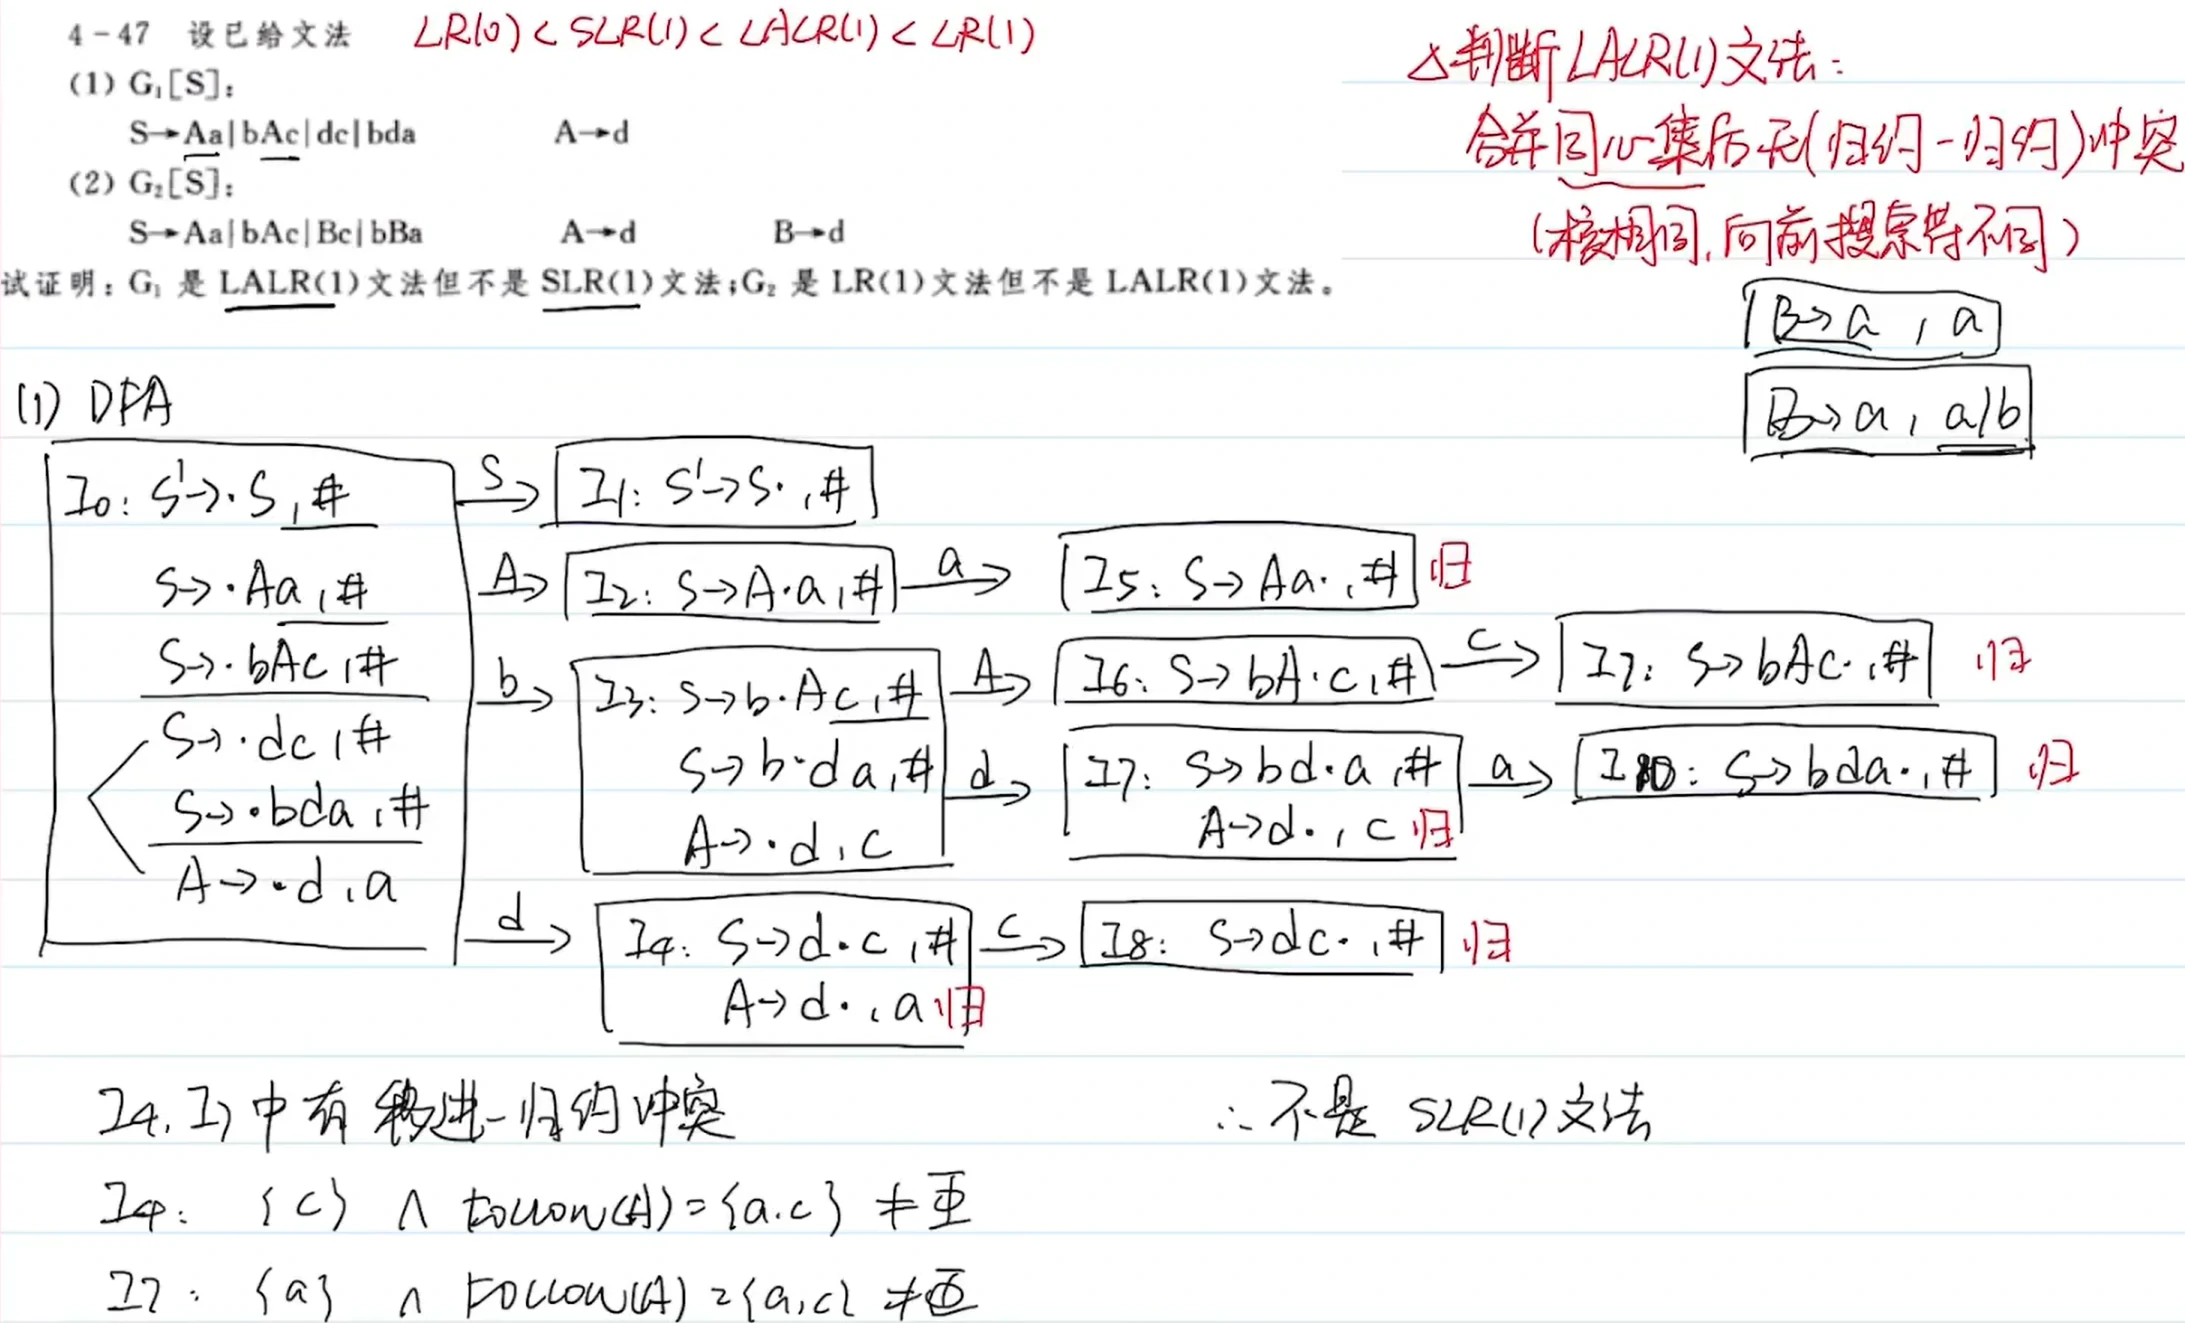 4-47 设已给文法 LR(0) < SLR(1) < LALR(1) < LR(1)
(1) G₁[S]:
S→Aa|bAc|dc|bda A→d
(2) G₂[S]:
S→Aa|bAc|Bc|bBa A→d B→d
试证明:G₁ 是 LALR(1)文法但不是 SLR(1)文法;G₂ 是 LR(1)文法但不是 LALR(1)文法。
△判断LALR(1)文法:
合并同心集后无(归约-归约)冲突
(核相同,向前搜索符不同)
B→a , a
B→a , a/b
(1) DFA
I0: S'→·S , #
S→·Aa , #
S→·bAc , #
S→·dc , #
S→·bda , #
A→·d , a
S
I1: S'→S· , #
A
I2: S→A·a , #
a
I5: S→Aa· , # 归
b
I3: S→b·Ac , #
S→b·da , #
A→·d , c
A
I6: S→bA·c , #
c
I7: S→bAc· , # 归
d
I7: S→bd·a , #
A→d· , c 归
a
I10: S→bda· , # 归
d
I4: S→d·c , #
A→d· , a 归
c
I8: S→dc· , # 归
I4, I7 中有 移进-归约冲突 ∴ 不是 SLR(1)文法
I4: {c} ∩ FOLLOW(A)={a,c} ≠ Φ
I7: {a} ∩ FOLLOW(A)={a,c} ≠ Φ